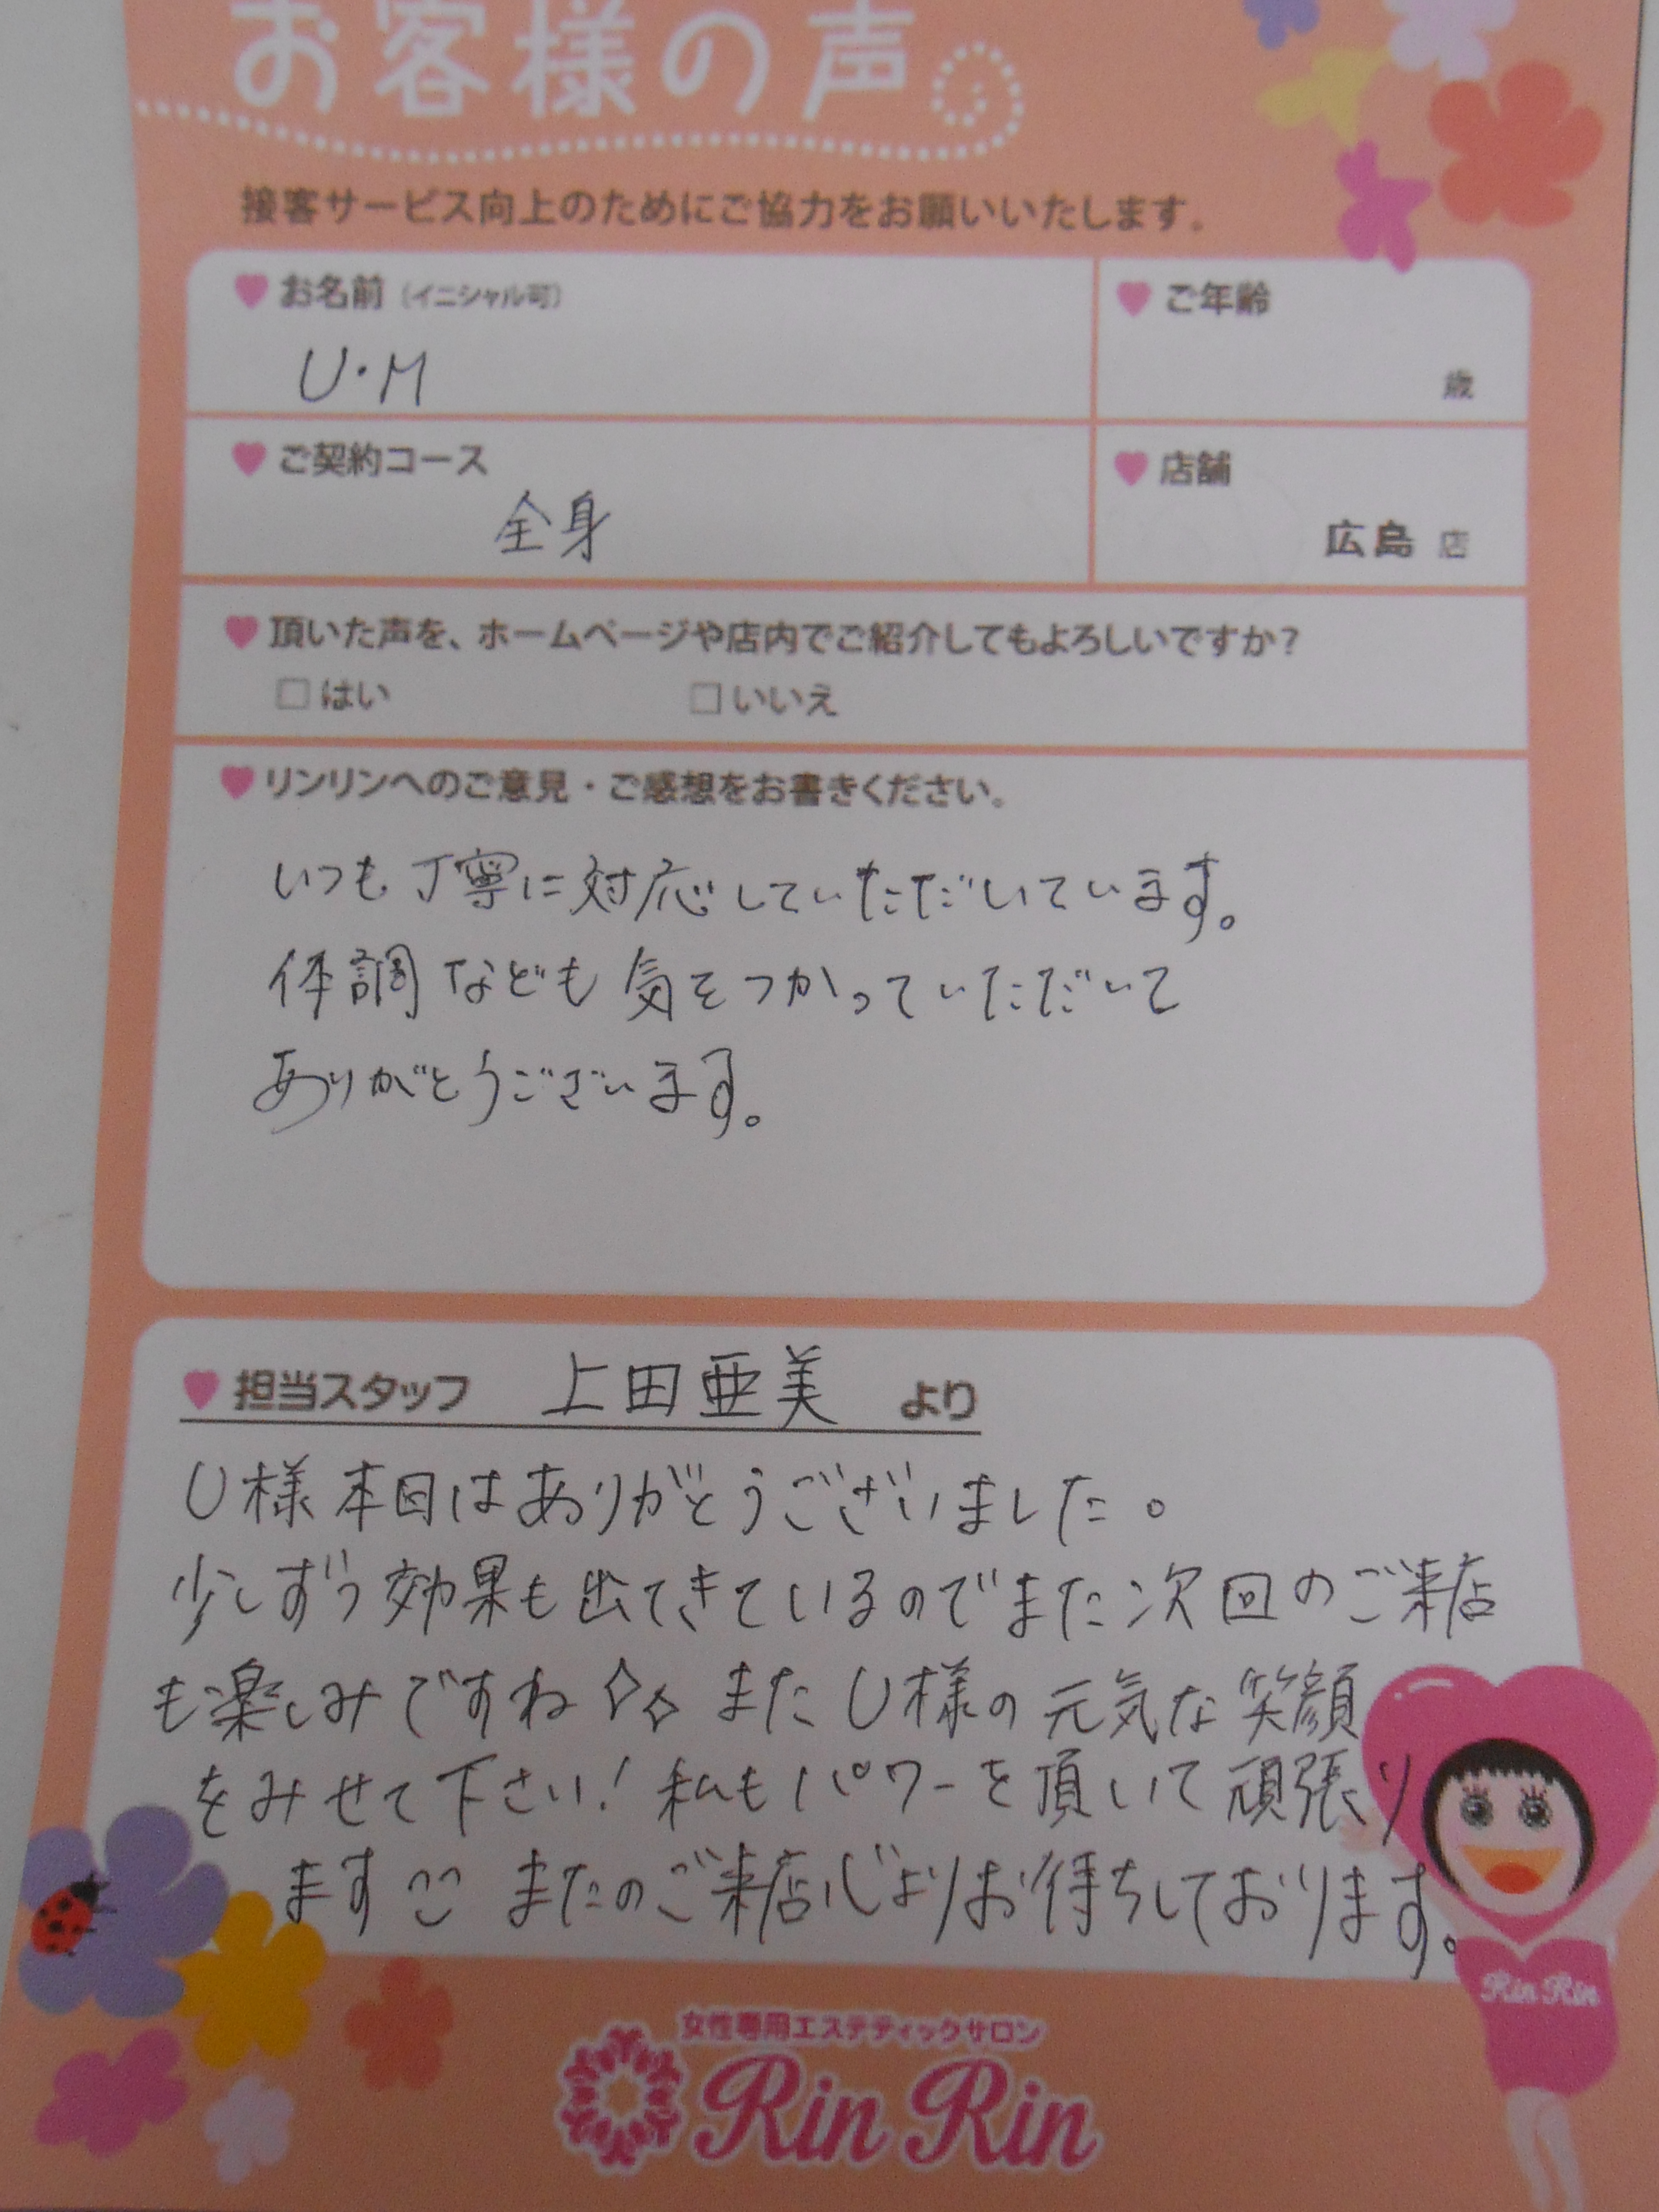 お客様の声
接客サービス向上のためにご協力をお願いいたします。
お名前（イニシャル可）
U・M
ご年齢
歳
ご契約コース
全身
店舗
広島 店
頂いた声を、ホームページや店内でご紹介してもよろしいですか？
□はい □いいえ
リンリンへのご意見・ご感想をお書きください。
いつも丁寧に対応していただいています。
体調なども気をつかっていただいて
ありがとうございます。
担当スタッフ 上田亜美 より
U様本日はありがとうございました。
少しずつ効果も出てきているのでまた次回のご来店
も楽しみですね またU様の元気な笑顔
をみせて下さい！私もパワーを頂いて頑張り
ます またのご来店心よりお待ちしております。
Rin Rin
女性専用エステティックサロン
Rin Rin